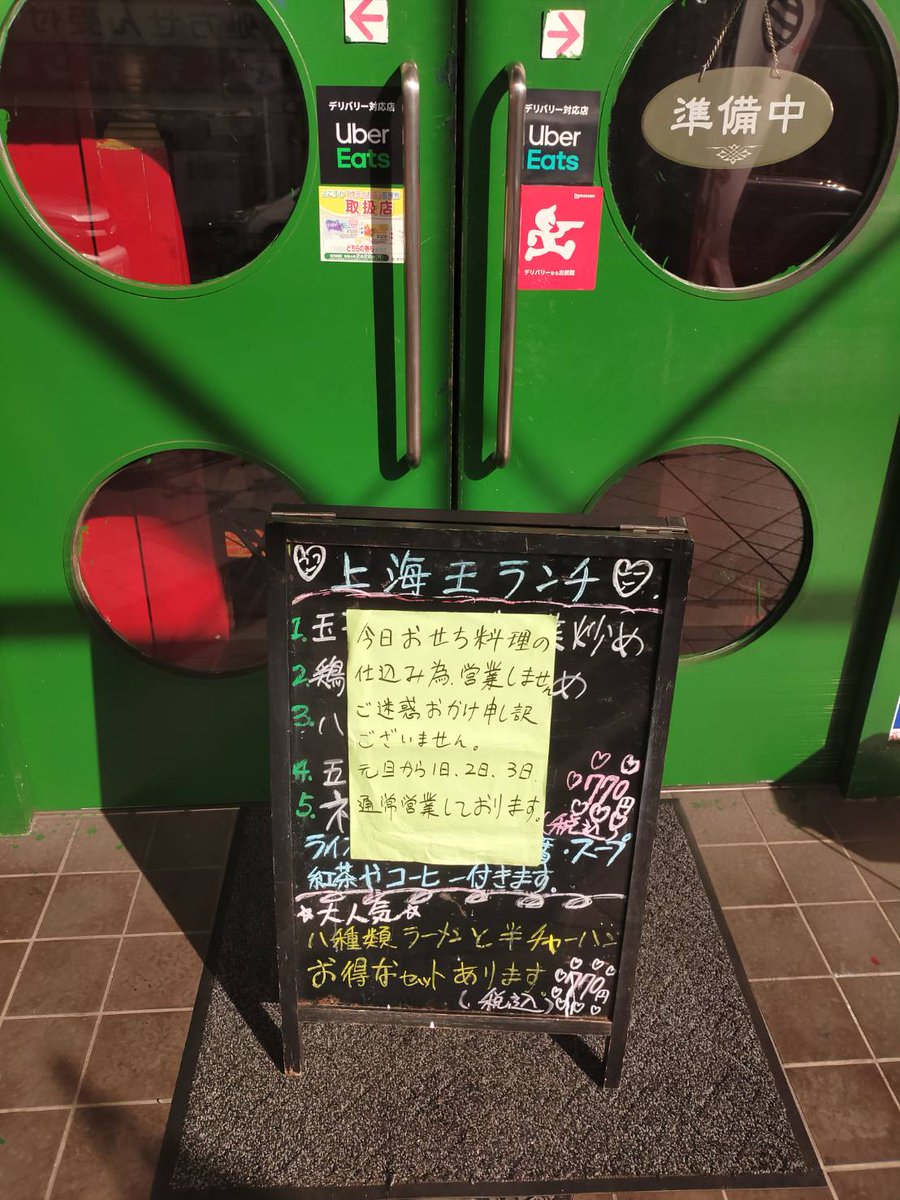 デリバリー対応店
Uber
Eats
取扱店
どちらの券も
デリバリー対応店
Uber
Eats
デリバリーなら出前館
準備中
上海王ランチ
1. 玉 炒め
2. 鶏 め
3. 八
4. 五
5.
770円
税込
今日おせち料理の
仕込み為、営業しません
ご迷惑おかけ申し訳
ございません。
元旦から1日、2日、3日、
通常営業しております。
ライ ・スープ
紅茶やコーヒー付きます。
☆大人気☆
八種類ラーメンと半チャーハン
お得なセットあります
770円
(税込)